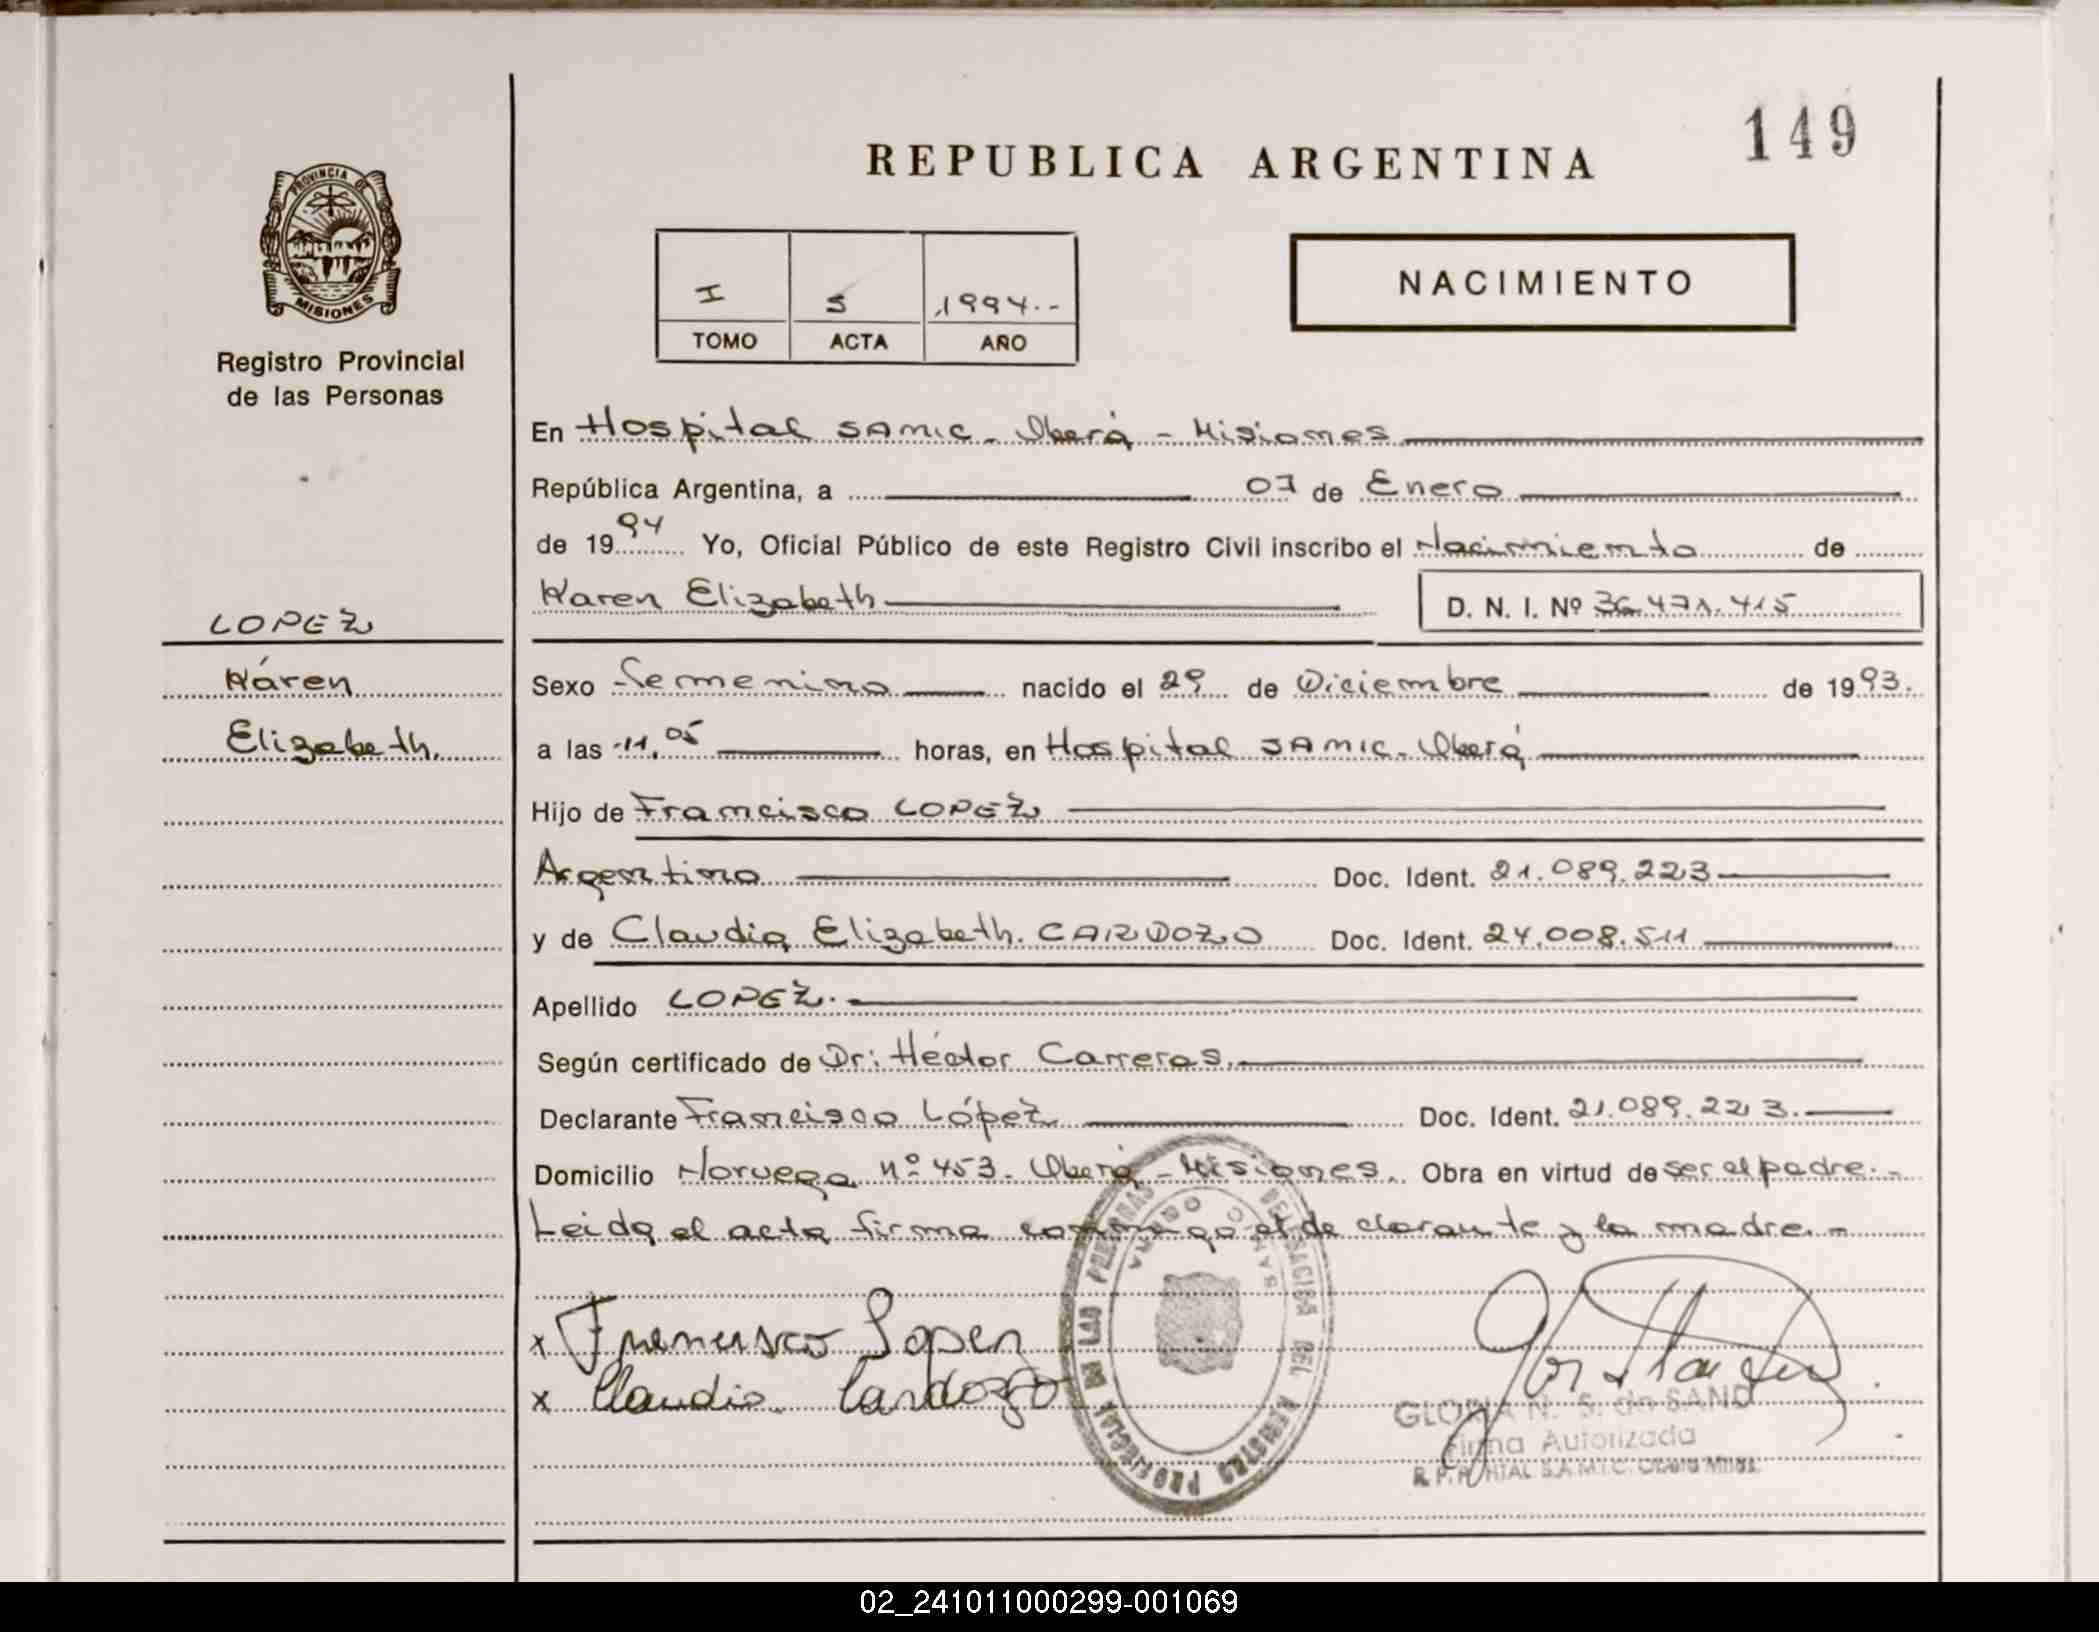 149
REPUBLICA ARGENTINA
PROVINCIA DE
MISIONES
Registro Provincial
de las Personas
I 5 1994.-
TOMO ACTA AÑO
NACIMIENTO
En Hospital SAMIC - Oberá - Misiones
República Argentina, a 07 de Enero
de 1994 Yo, Oficial Público de este Registro Civil inscribo el Nacimiento de
Karen Elizabeth
D. N. I. Nº 36.471.415
LOPEZ
Káren
Elizabeth.
Sexo Femenino nacido el 29 de Diciembre de 1993.
a las 11,05 horas, en Hospital SAMIC - Oberá
Hijo de Francisco LOPEZ
Argentino Doc. Ident. 21.089.223
y de Claudia Elizabeth CARDOZO Doc. Ident. 24.008.511
Apellido LOPEZ.
Según certificado de Dr: Héctor Carreras.
Declarante Francisco López Doc. Ident. 21.089.223.
Domicilio Noruega nº 453. Oberá - Misiones. Obra en virtud de ser el padre.-
Leida el acta firma conmigo el declarante y la madre.-
x Francisco Lopez
x Claudia Cardozo
DELEGACION DEL REGISTRO PROVINCIAL DE LAS PERSONAS
SAMIC OBERA
GLORIA N. S. de SAND
Firma Autorizada
S.A.M.I.C. Oberá Mnes.
02_241011000299-001069